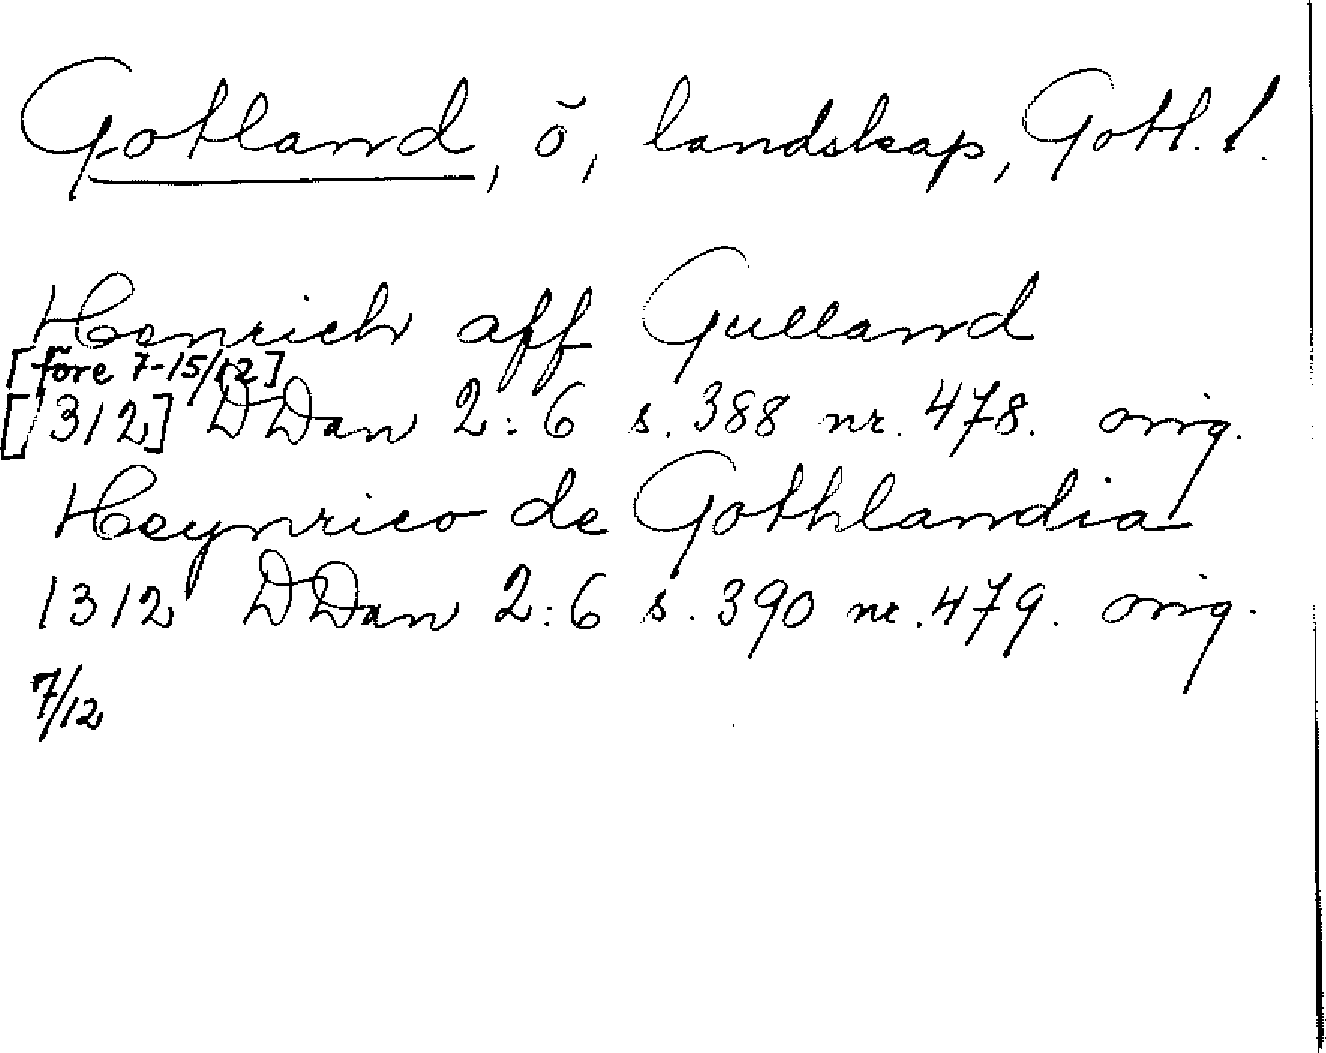 Gotland, ö, landskap, Gotl. l.
Henrich aff Gulland
[före 7-15/12]
[1312] DDan 2:6 s. 388 nr. 478. orig.
Heynrico de Gothlandia
1312 DDan 2:6 s. 390 nr. 479. orig.
7/12